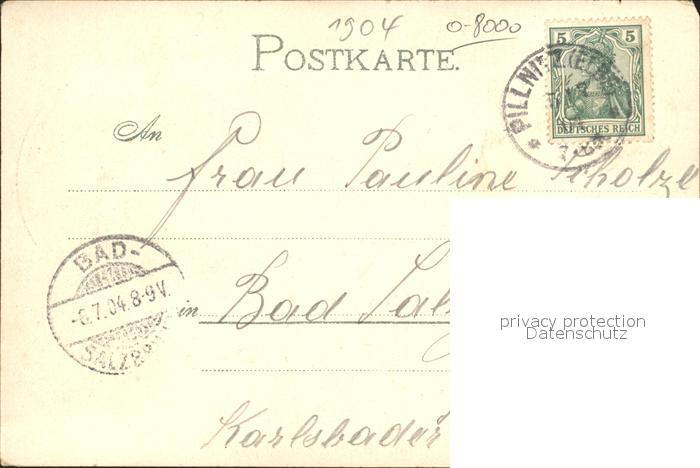 1904 0-8000
POSTKARTE.
5 5
DEUTSCHES REICH
* PILLNITZ (ELBE)
An
Frau Pauline Scholze
BAD-
-6.7.04.8-9V.
SALZBR
in Bad Sal
Karlsbader
privacy protection
Datenschutz